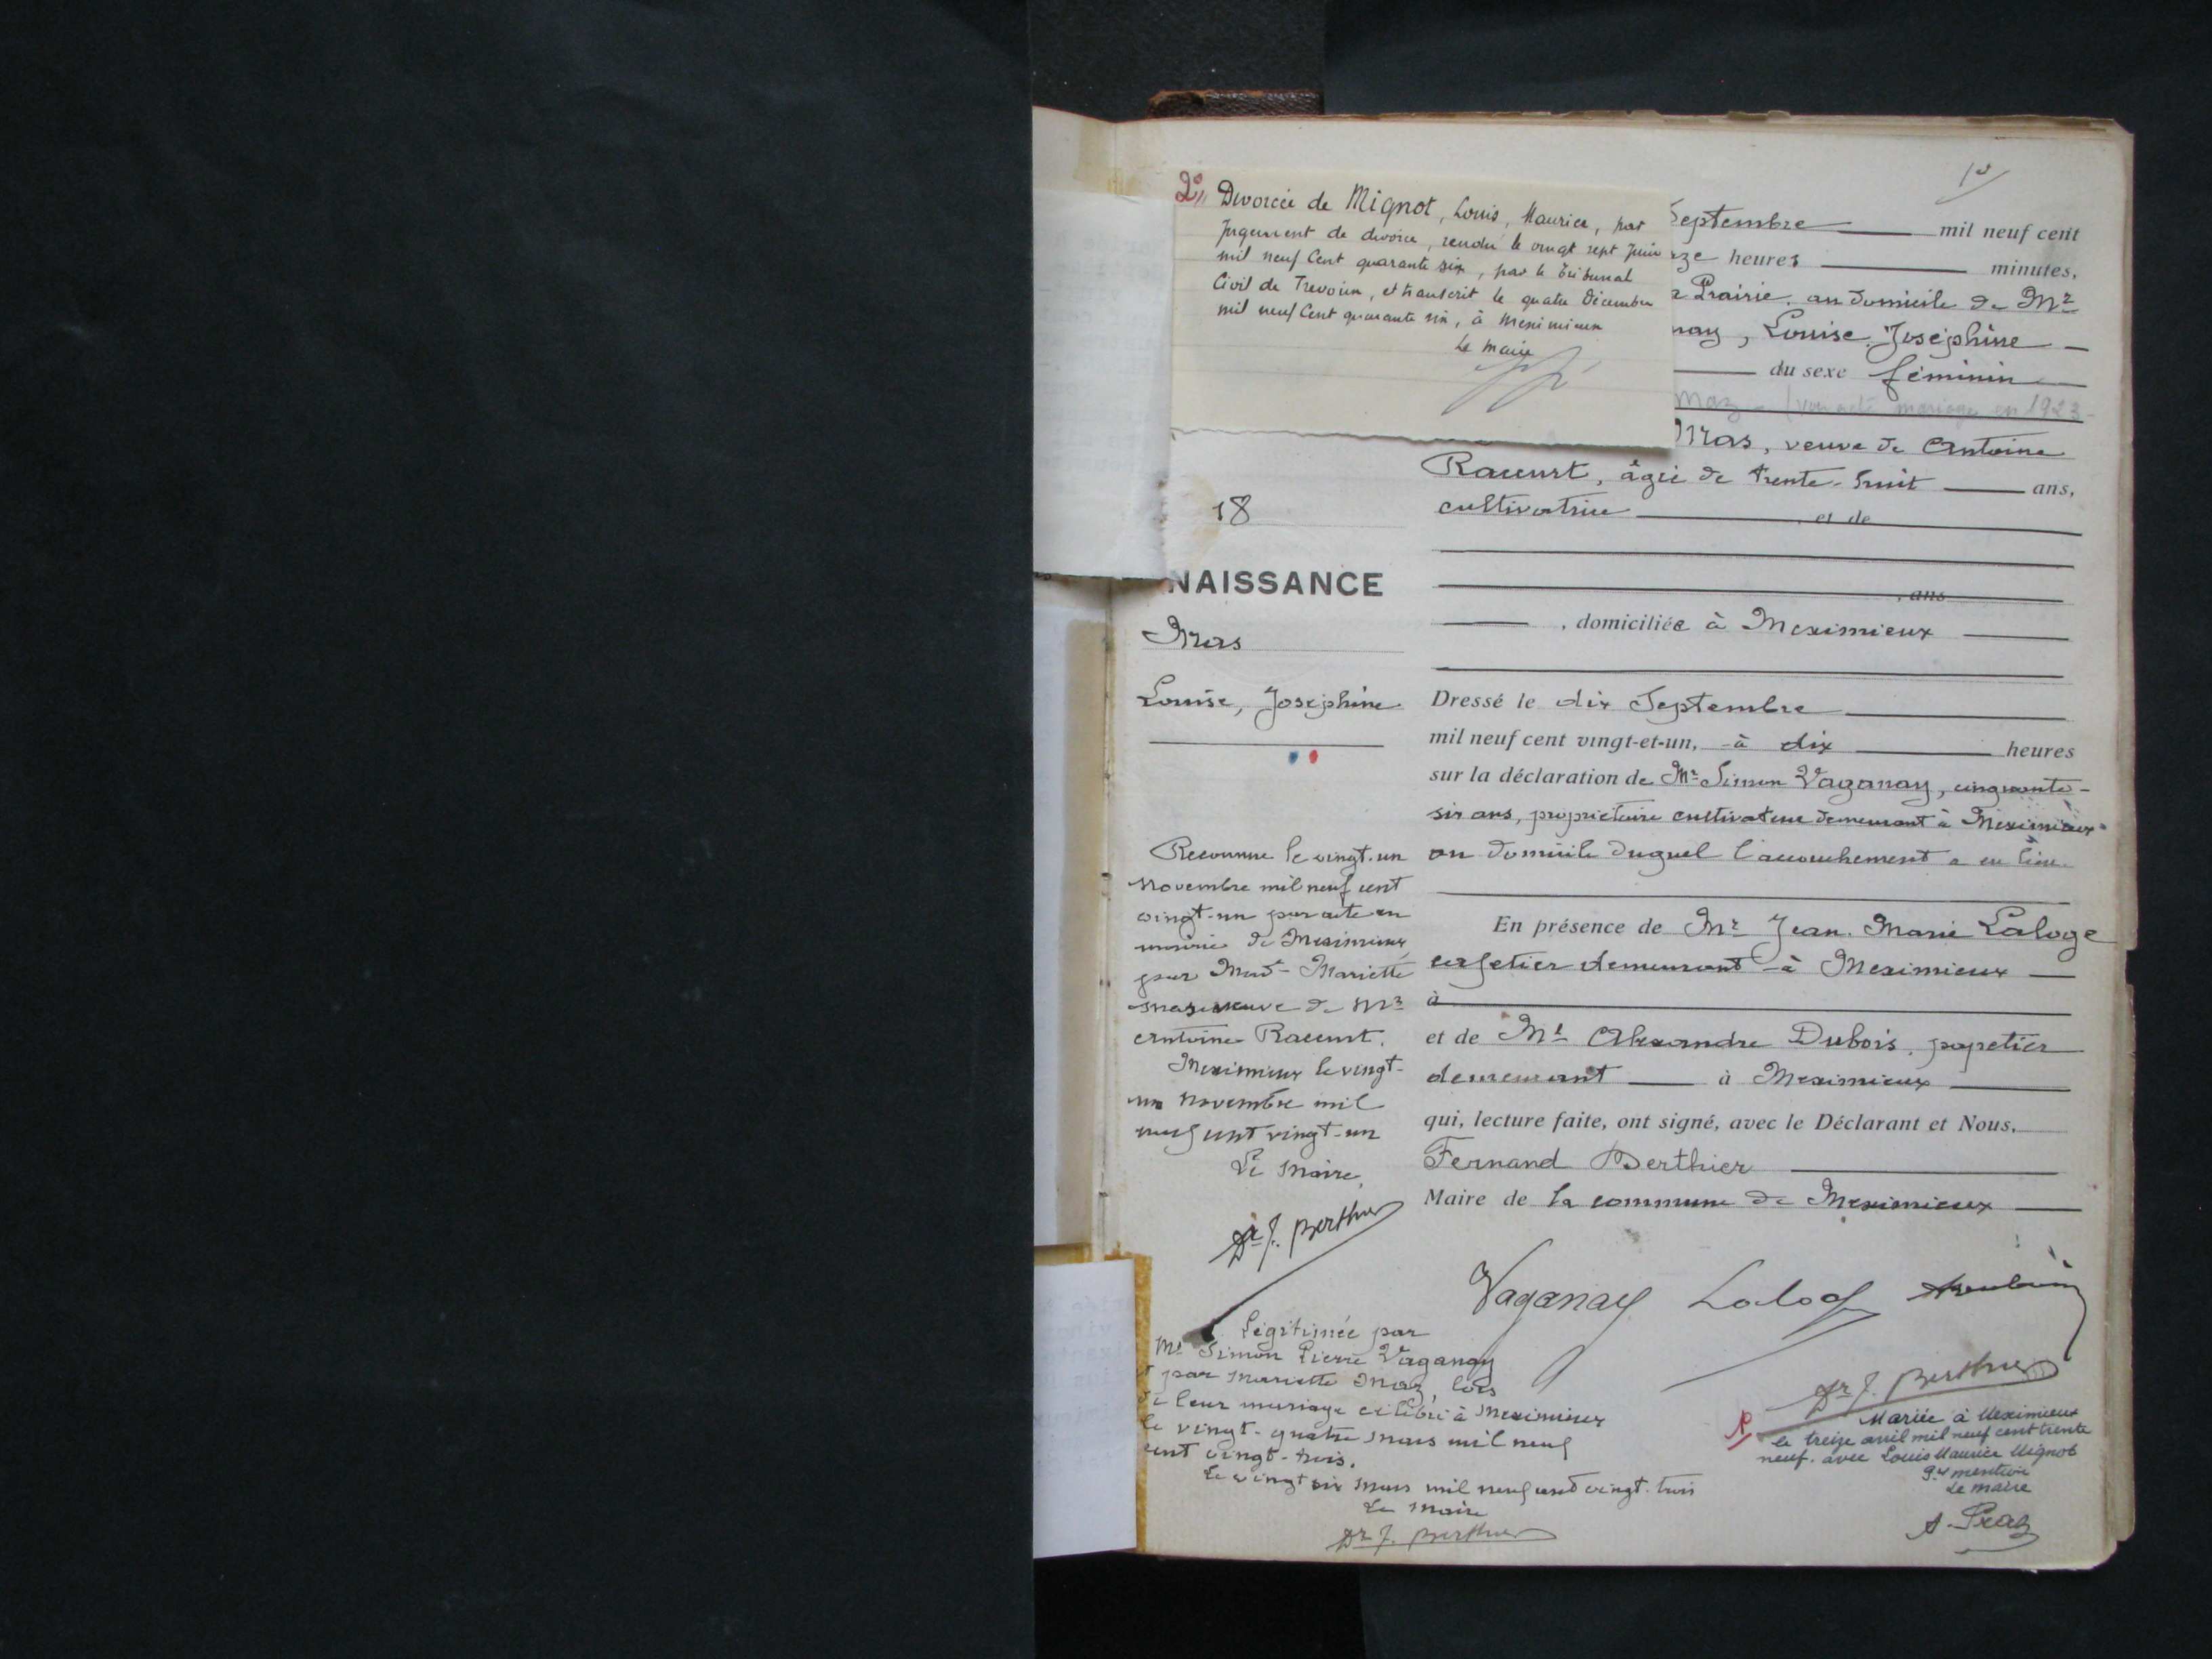 10
2° Divorcée de Mignot, Louis, Maurice, par
Jugement de divorce, rendu le vingt sept Juin
mil neuf Cent quarante six, par le Tribunal
Civil de Trevoux, et transcrit le quatre Décembre
mil neuf Cent quarante six, à Meximieux
Le Maire
Septembre mil neuf cent
ze heures minutes,
Prairie, au domicile de Mr
nay, Louise, Joséphine
du sexe féminin
Maz - (voir acte mariage en 1923
Mas, veuve de Antoine
Racurt, âgée de trente-huit ans,
cultivatrice , et de
, ans
, domiciliée à Meximieux
18
NAISSANCE
Mas
Louise, Joséphine
Dressé le dix Septembre
mil neuf cent vingt-et-un, à dix heures
sur la déclaration de Mr Simon Vaganay, cinquante-
six ans, propriétaire cultivateur demeurant à Meximieux
au domicile duquel l'accouchement a eu lieu.
En présence de Mr Jean-Marie Laloge
cafetier demeurant à Meximieux
à
et de Mr Alexandre Dubois, papetier
demeurant à Meximieux
qui, lecture faite, ont signé, avec le Déclarant et Nous,
Fernand Berthier
Maire de la commune de Meximieux
Reconnue le vingt-un
novembre mil neuf cent
vingt-un par acte en
mairie de Meximieux
par Mad- Mariette
Maz veuve de Mr
Antoine Racurt.
Meximieux le vingt-
un novembre mil
neuf cent vingt-un
Le Maire,
Dr F. Berthier
Vaganay Laloge
Dr F. Berthier
Légitimée par
Mr Simon Pierre Vaganay
et par Mariette Maz, lors
de leur mariage célébré à Meximieux
le vingt-quatre mars mil neuf
cent vingt-trois.
Le vingt six mars mil neuf cent vingt-trois
Le Maire
Dr F. Berthier
Mariée à Meximieux
le treize avril mil neuf cent trente
neuf. avec Louis Maurice Mignot
Pr mention
Le maire